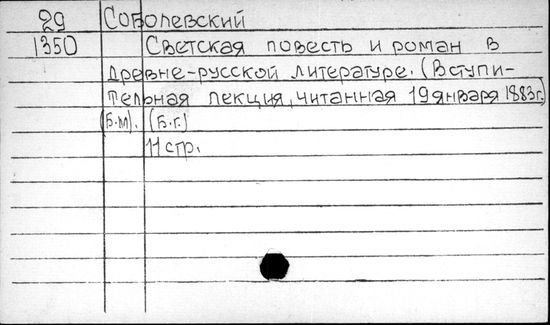 29 Соболевский
1350 Светская повесть и роман в
древне-русской литературе. (Вступи-
тельная лекция, читанная 19 января 1883г.)
(Б.м). (Б.г.)
11 стр.